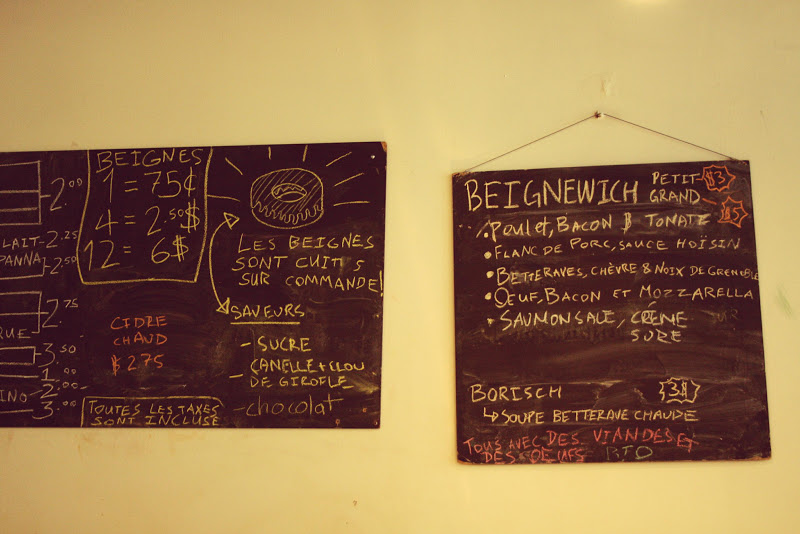 2.00
LAIT- 2.25
PANNA 2.50
2.75
QUE
3.50
1.00
INO 2.00
3.00
BEIGNES
1 = 75¢
4 = 2.50$
12 = 6$
CIDRE
CHAUD
$2.75
TOUTES LES TAXES
SONT INCLUSE
LES BEIGNES
SONT CUITS
SUR COMMANDE!
SAVEURS
- SUCRE
- CANELLE + CLOU
DE GIROFLE
- chocolat
BEIGNEWICH PETIT $3
GRAND $5
• Poulet, BACON & TOMATE
• FLANC DE PORC, SAUCE HOÏSIN
• BETTERAVES, CHÈVRE & NOIX DE GRENOBLE
• OEUF, BACON ET MOZZARELLA
• SAUMON SALÉ, CRÈME
SURE
BORISCH 3$
↳ SOUPE BETTERAVE CHAUDE
TOUS AVEC DES VIANDES ET
DES OEUFS BIO